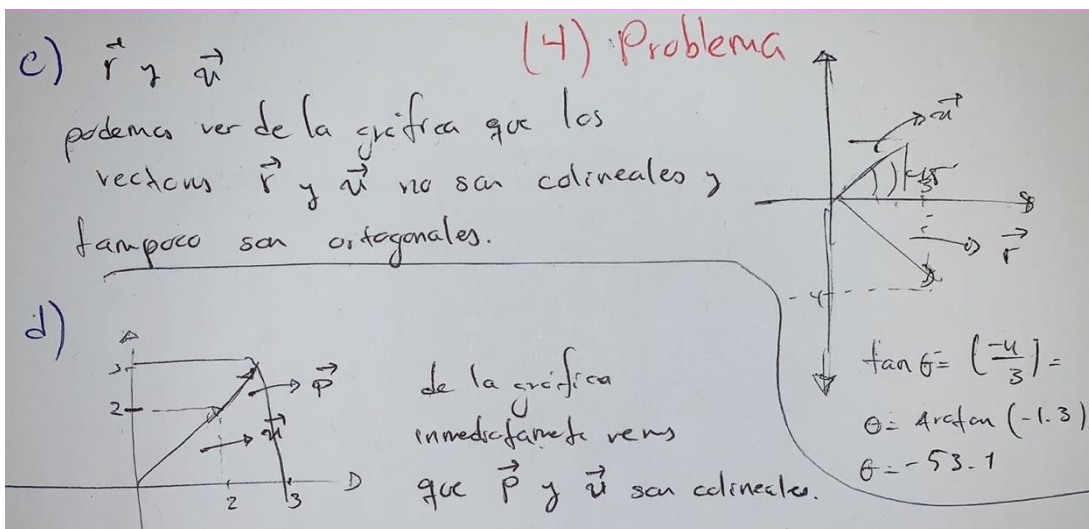 (4) Problema
c) r⃗ y u⃗
podemos ver de la gráfica que los
vectores r⃗ y u⃗ no son colineales y
tampoco son ortogonales.
u⃗
45
3
r⃗
-4
tan θ = (-4/3) =
θ = Arctan (-1.3)
θ = -53.1
d)
3
2
p⃗
u⃗
2 3
de la gráfica
inmediatamete vems
que p⃗ y u⃗ son colineales.